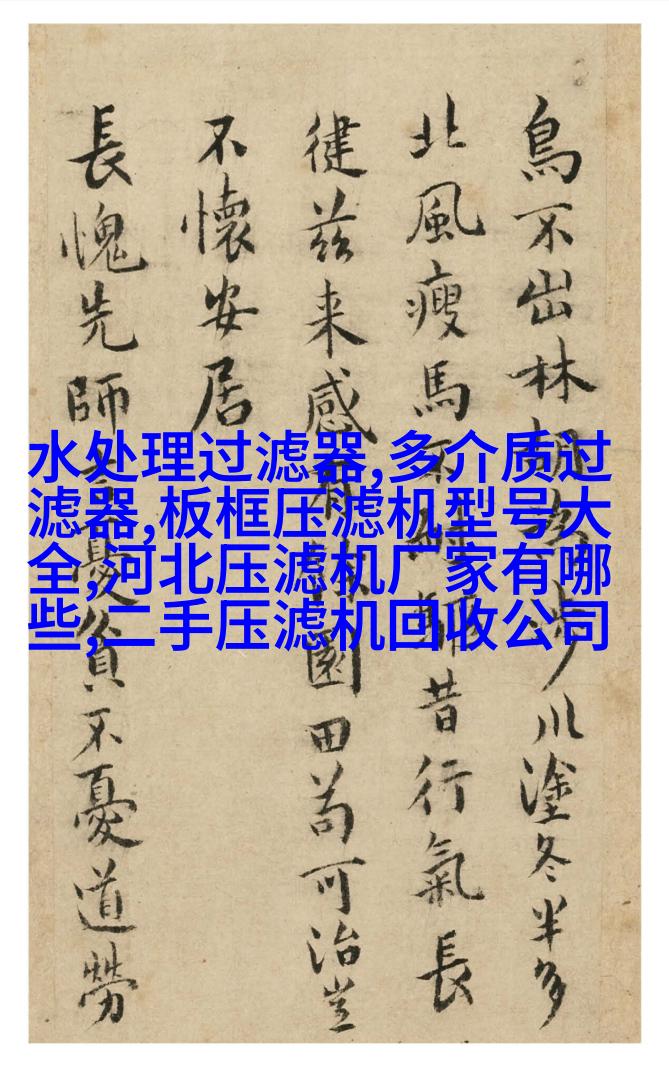 鳥不出林胡為涉川塗冬半多
北風瘦馬不昔行氣長
徤兹来感有園田苟可治豈
不懷安居
長愧先師憂貧不憂道勞
水处理过滤器,多介质过
滤器,板框压滤机型号大
全,河北压滤机厂家有哪
些,二手压滤机回收公司